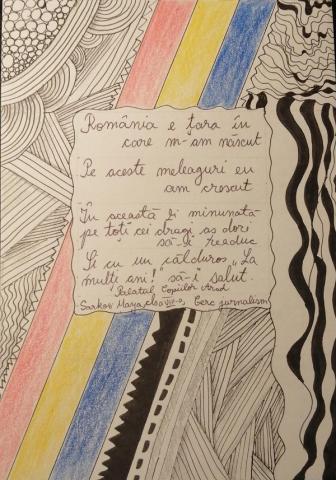 România e țara în
care m-am născut
Pe aceste meleaguri eu
am crescut
În această zi minunată
pe toți cei dragi aș dori
să-i readuc
Și cu un călduros „La
mulți ani!” să-i salut.
Palatul Copiilor Arad
Sarkosi Maya, clsa VIII-a, Cerc jurnalism